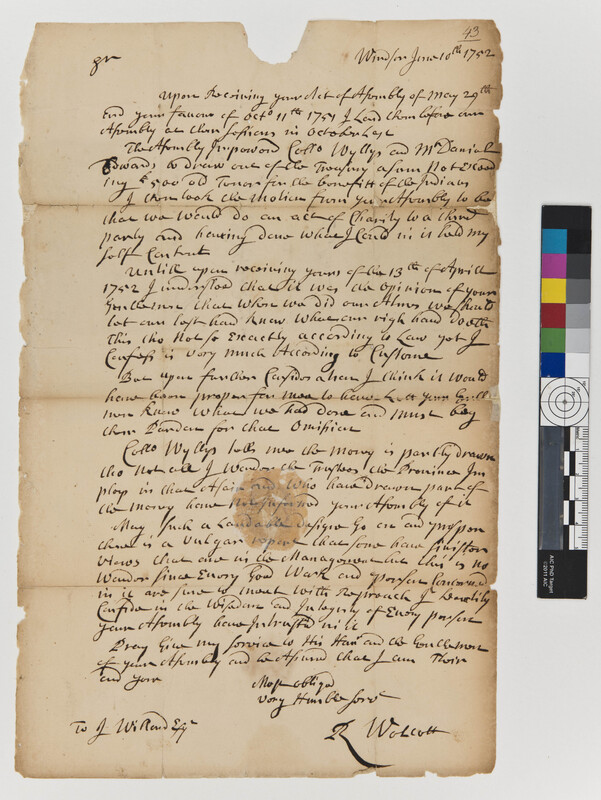 43
Sr
Windsor June 10th 1752
Upon Receiving your Act of Assembly of May 29th
and your favour of octo 11th 1751 I Laid them before our
Assembly at their sessions in october Last
The Assembly Impowerd Collo Wyllys and Mr Daniel
Edwards to draw out of the Treasury a sum Not Exceed
ing £500 old Tenor for the benefitt of the Indians
I then took the Motion from your Assembly to be
that we would do an act of Charity to a third
party and haveing done what I Could in it held my
self Content
Untill upon receiving yours of the 13th of Aprill
1752 I understod that it was the opinion of your
Gentlemen that when we did our Almes we should
let our left hand know what our righ hand doeth
This tho Not so Exactly according to Law yet I
Confess is very much According to Custome
But upon further Consideration I think it would
have been proper for mee to have Lett your Gentle
men know what we had done and must beg
their Pardon for that Omission
Collo Wyllys tells mee the money is partly drawn
tho Not all I Wonder the Trustees the Province Im
ploy in that Afair and who have drawn part of
the money have Not Informed your Assembly of it
May such a Laudable designe Go on and prosper
there is a Vulgar report that some have sinister
views that are in the Management but this is no
Wonder since Every Good Work and person Concerned
in it are sure to meet with Reproach I heartily
Confide in the Wisdom and Integrity of Every person
your Assembly have Intrusted in it
Pray Give my service to His Honr and the Gentlemen
of your Assembly and be Assured that I am Their
and your
Most obliged
very Humble servt
R Wolcott
To J Willard Esqr
AIC PhD Target
©2011 AIC